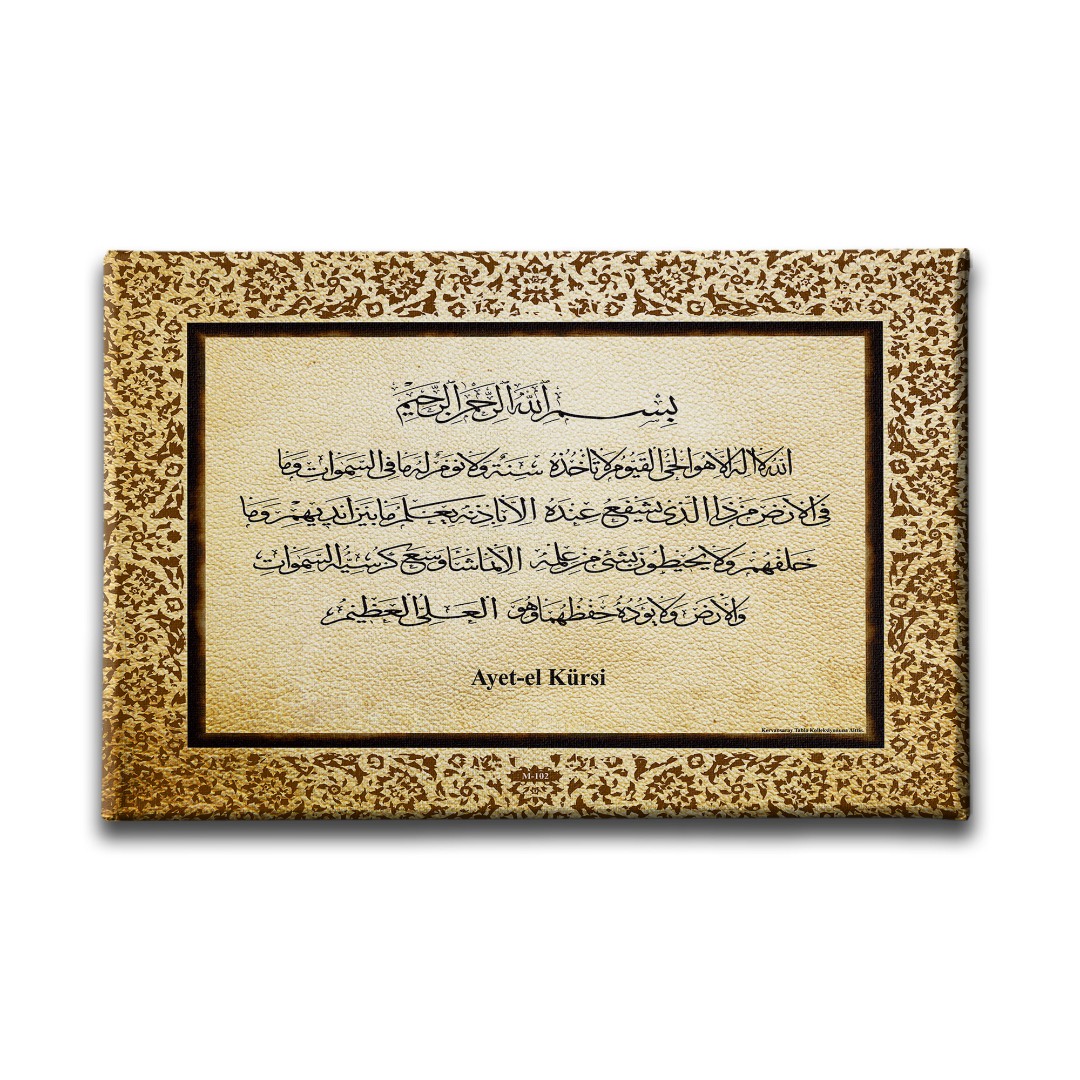 بسم الله الرحمن الرحيم
الله لا اله الا هو الحي القيوم لا تأخذه سنة ولا نوم له ما في السموات وما
في الارض من ذا الذي يشفع عنده الا باذنه يعلم ما بين ايديهم وما
خلفهم ولا يحيطون بشئ من علمه الا بما شا وسع كرسيه السموات
والارض ولا يؤده حفظهما وهو العلي العظيم
Ayet-el Kürsi
Kervansaray Tablo Kolleksiyonuna Aittir.
M-102